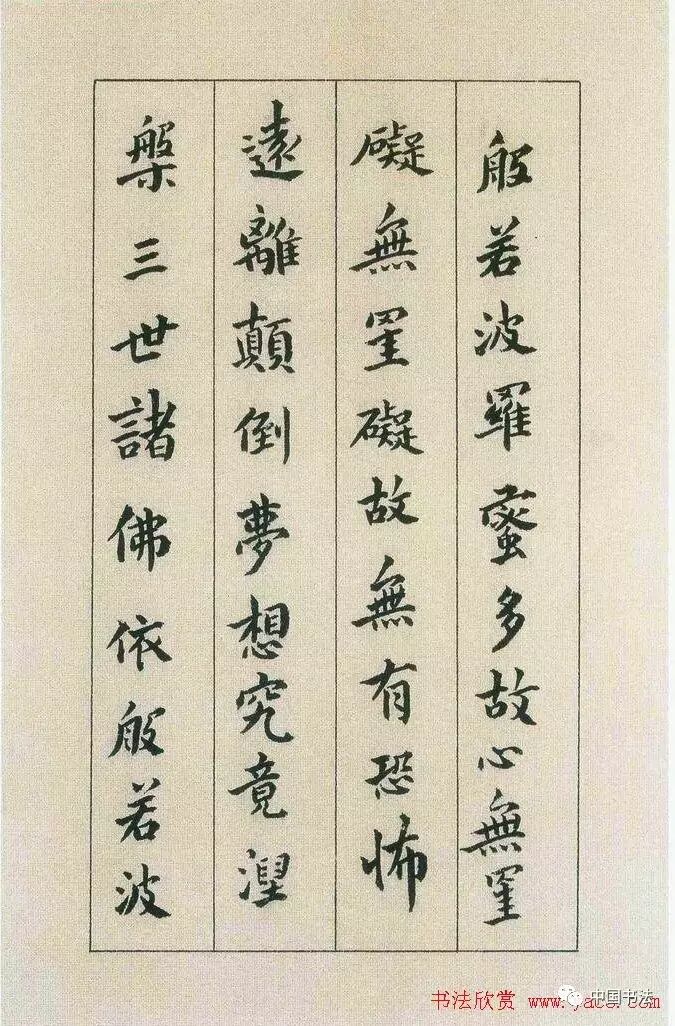 般若波羅蜜多故心無罣
礙無罣礙故無有恐怖
遠離顛倒夢想究竟涅
槃三世諸佛依般若波
书法欣赏 www.yac8.com
中国书法